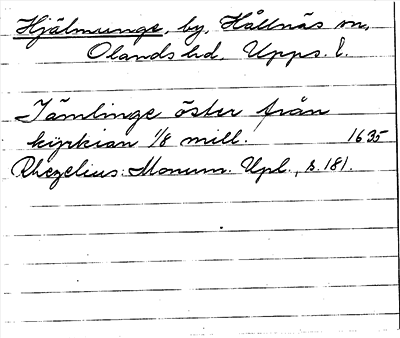 Hjälmunge, by, Hållnäs sn,
Olands hd, Upps. l.
Jämlinge öster från
kyrkian 1/8 mill. 1635
Rhezelius: Monum. Upl., s. 181.